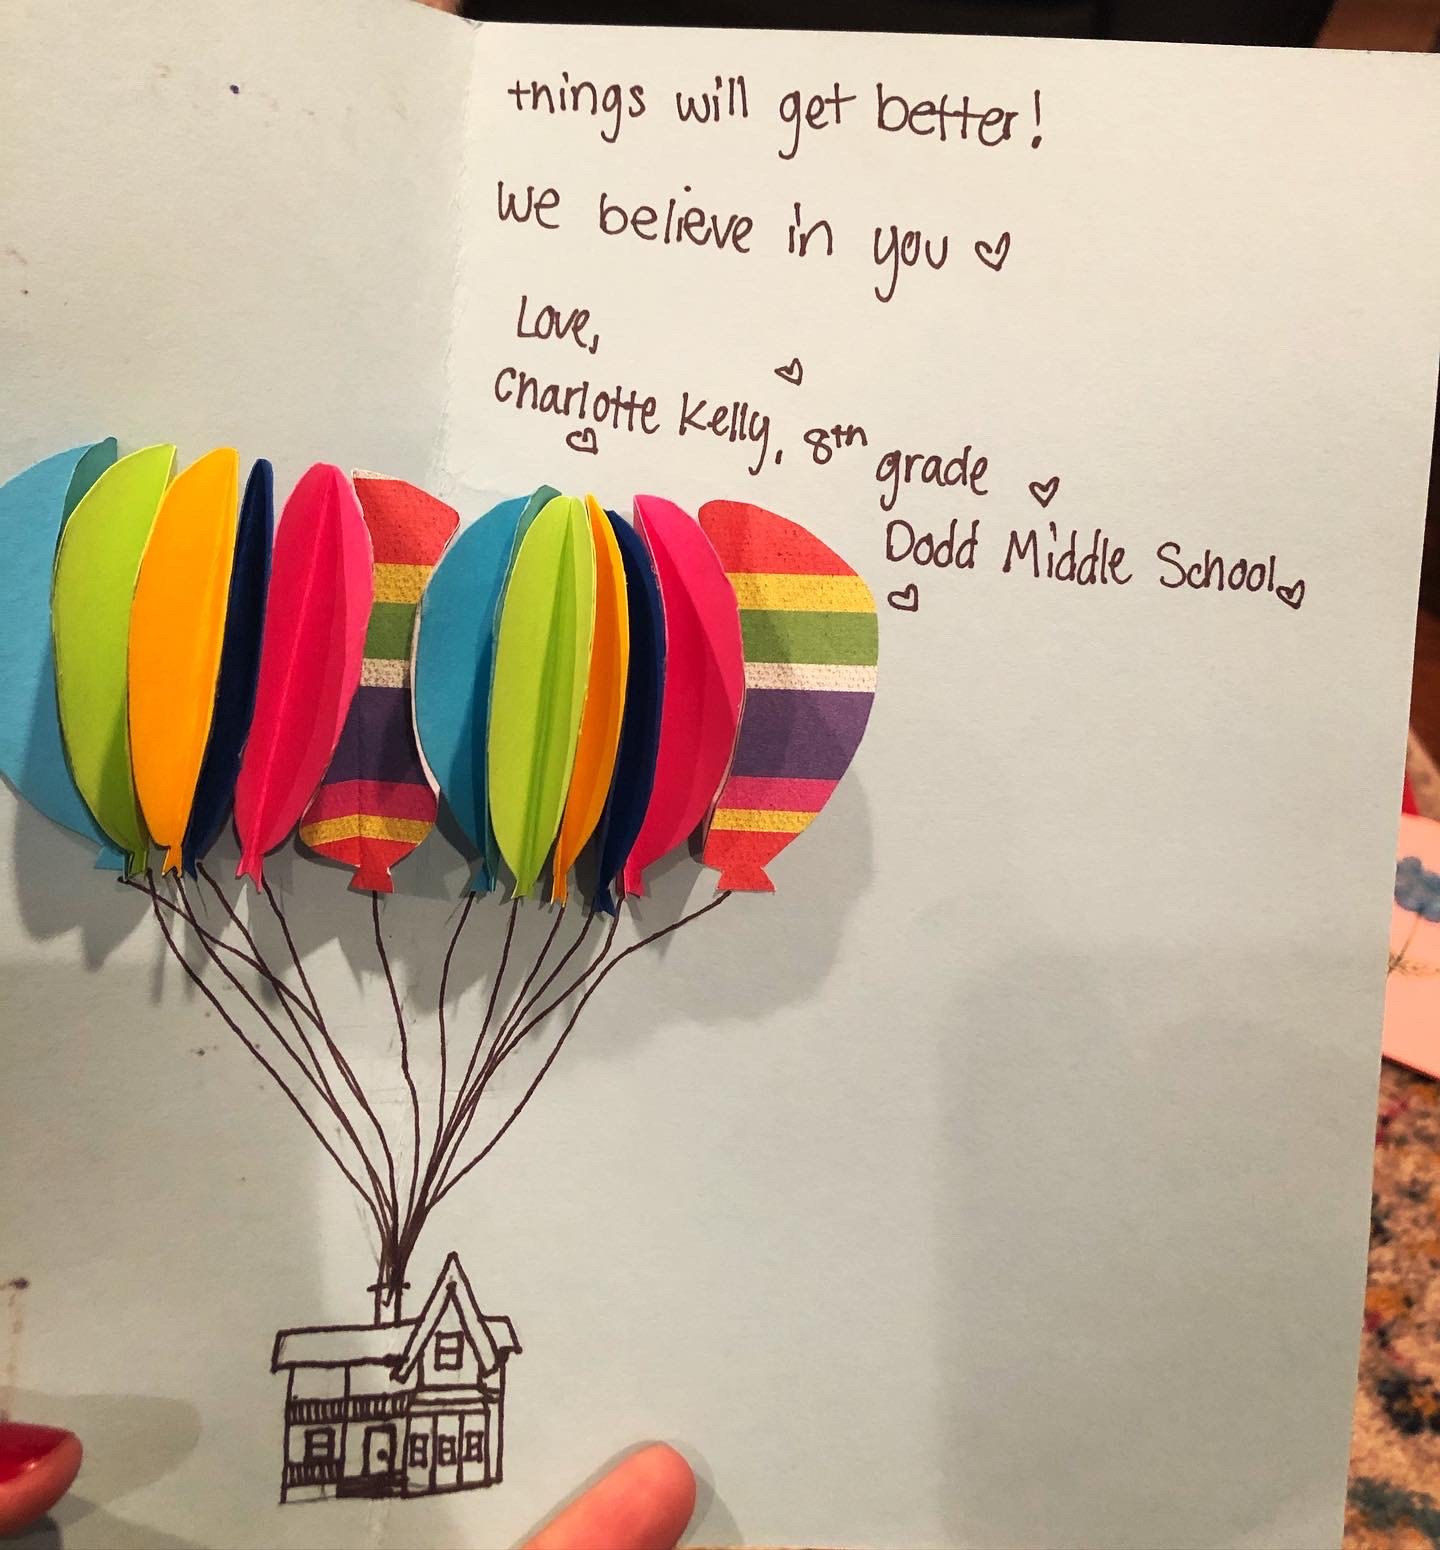 things will get better!
we believe in you ♡
Love,
Charlotte Kelly, 8th grade
Dodd Middle School